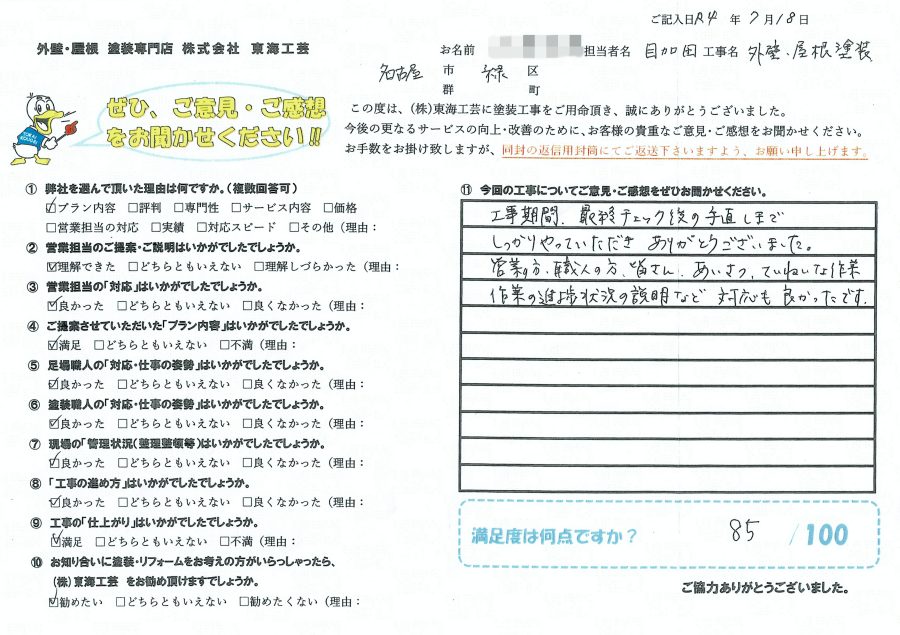 ご記入日R4 年 7月18日
外壁・屋根 塗装専門店 株式会社 東海工芸
お名前 担当者名 目加田 工事名 外壁、屋根塗装
名古屋 市 緑 区
群 町
ぜひ、ご意見・ご感想
をお聞かせください!!
この度は、(株)東海工芸に塗装工事をご用命頂き、誠にありがとうございました。
今後の更なるサービスの向上・改善のために、お客様の貴重なご意見・ご感想をお聞かせください。
お手数をお掛け致しますが、同封の返信用封筒にてご返送下さいますよう、お願い申し上げます。
① 弊社を選んで頂いた理由は何ですか。(複数回答可)
☑プラン内容 □評判 □専門性 □サービス内容 □価格
□営業担当の対応 □実績 □対応スピード □その他(理由:
② 営業担当のご提案・ご説明はいかがでしたでしょうか。
☑理解できた □どちらともいえない □理解しづらかった(理由:
③ 営業担当の「対応」はいかがでしたでしょうか。
☑良かった □どちらともいえない □良くなかった(理由:
④ ご提案させていただいた「プラン内容」はいかがでしたでしょうか。
☑満足 □どちらともいえない □不満(理由:
⑤ 足場職人の「対応・仕事の姿勢」はいかがでしたでしょうか。
☑良かった □どちらともいえない □良くなかった(理由:
⑥ 塗装職人の「対応・仕事の姿勢」はいかがでしたでしょうか。
☑良かった □どちらともいえない □良くなかった(理由:
⑦ 現場の「管理状況(整理整頓等)はいかがでしたでしょうか。
☑良かった □どちらともいえない □良くなかった(理由:
⑧ 「工事の進め方」はいかがでしたでしょうか。
☑良かった □どちらともいえない □良くなかった(理由:
⑨ 工事の「仕上がり」はいかがでしたでしょうか。
☑満足 □どちらともいえない □不満(理由:
⑩ お知り合いに塗装・リフォームをお考えの方がいらっしゃったら、
(株)東海工芸 をお勧め頂けますでしょうか。
☑勧めたい □どちらともいえない □勧めたくない(理由:
⑪ 今回の工事についてご意見・ご感想をぜひお聞かせください。
工事期間、最終チェック後の手直しまで
しっかりやっていただき ありがとうございました。
営業の方、職人の方、皆さん、あいさつ、ていねいな作業
作業の進捗状況の説明など 対応も 良かったです。
満足度は何点ですか? 85 /100
ご協力ありがとうございました。